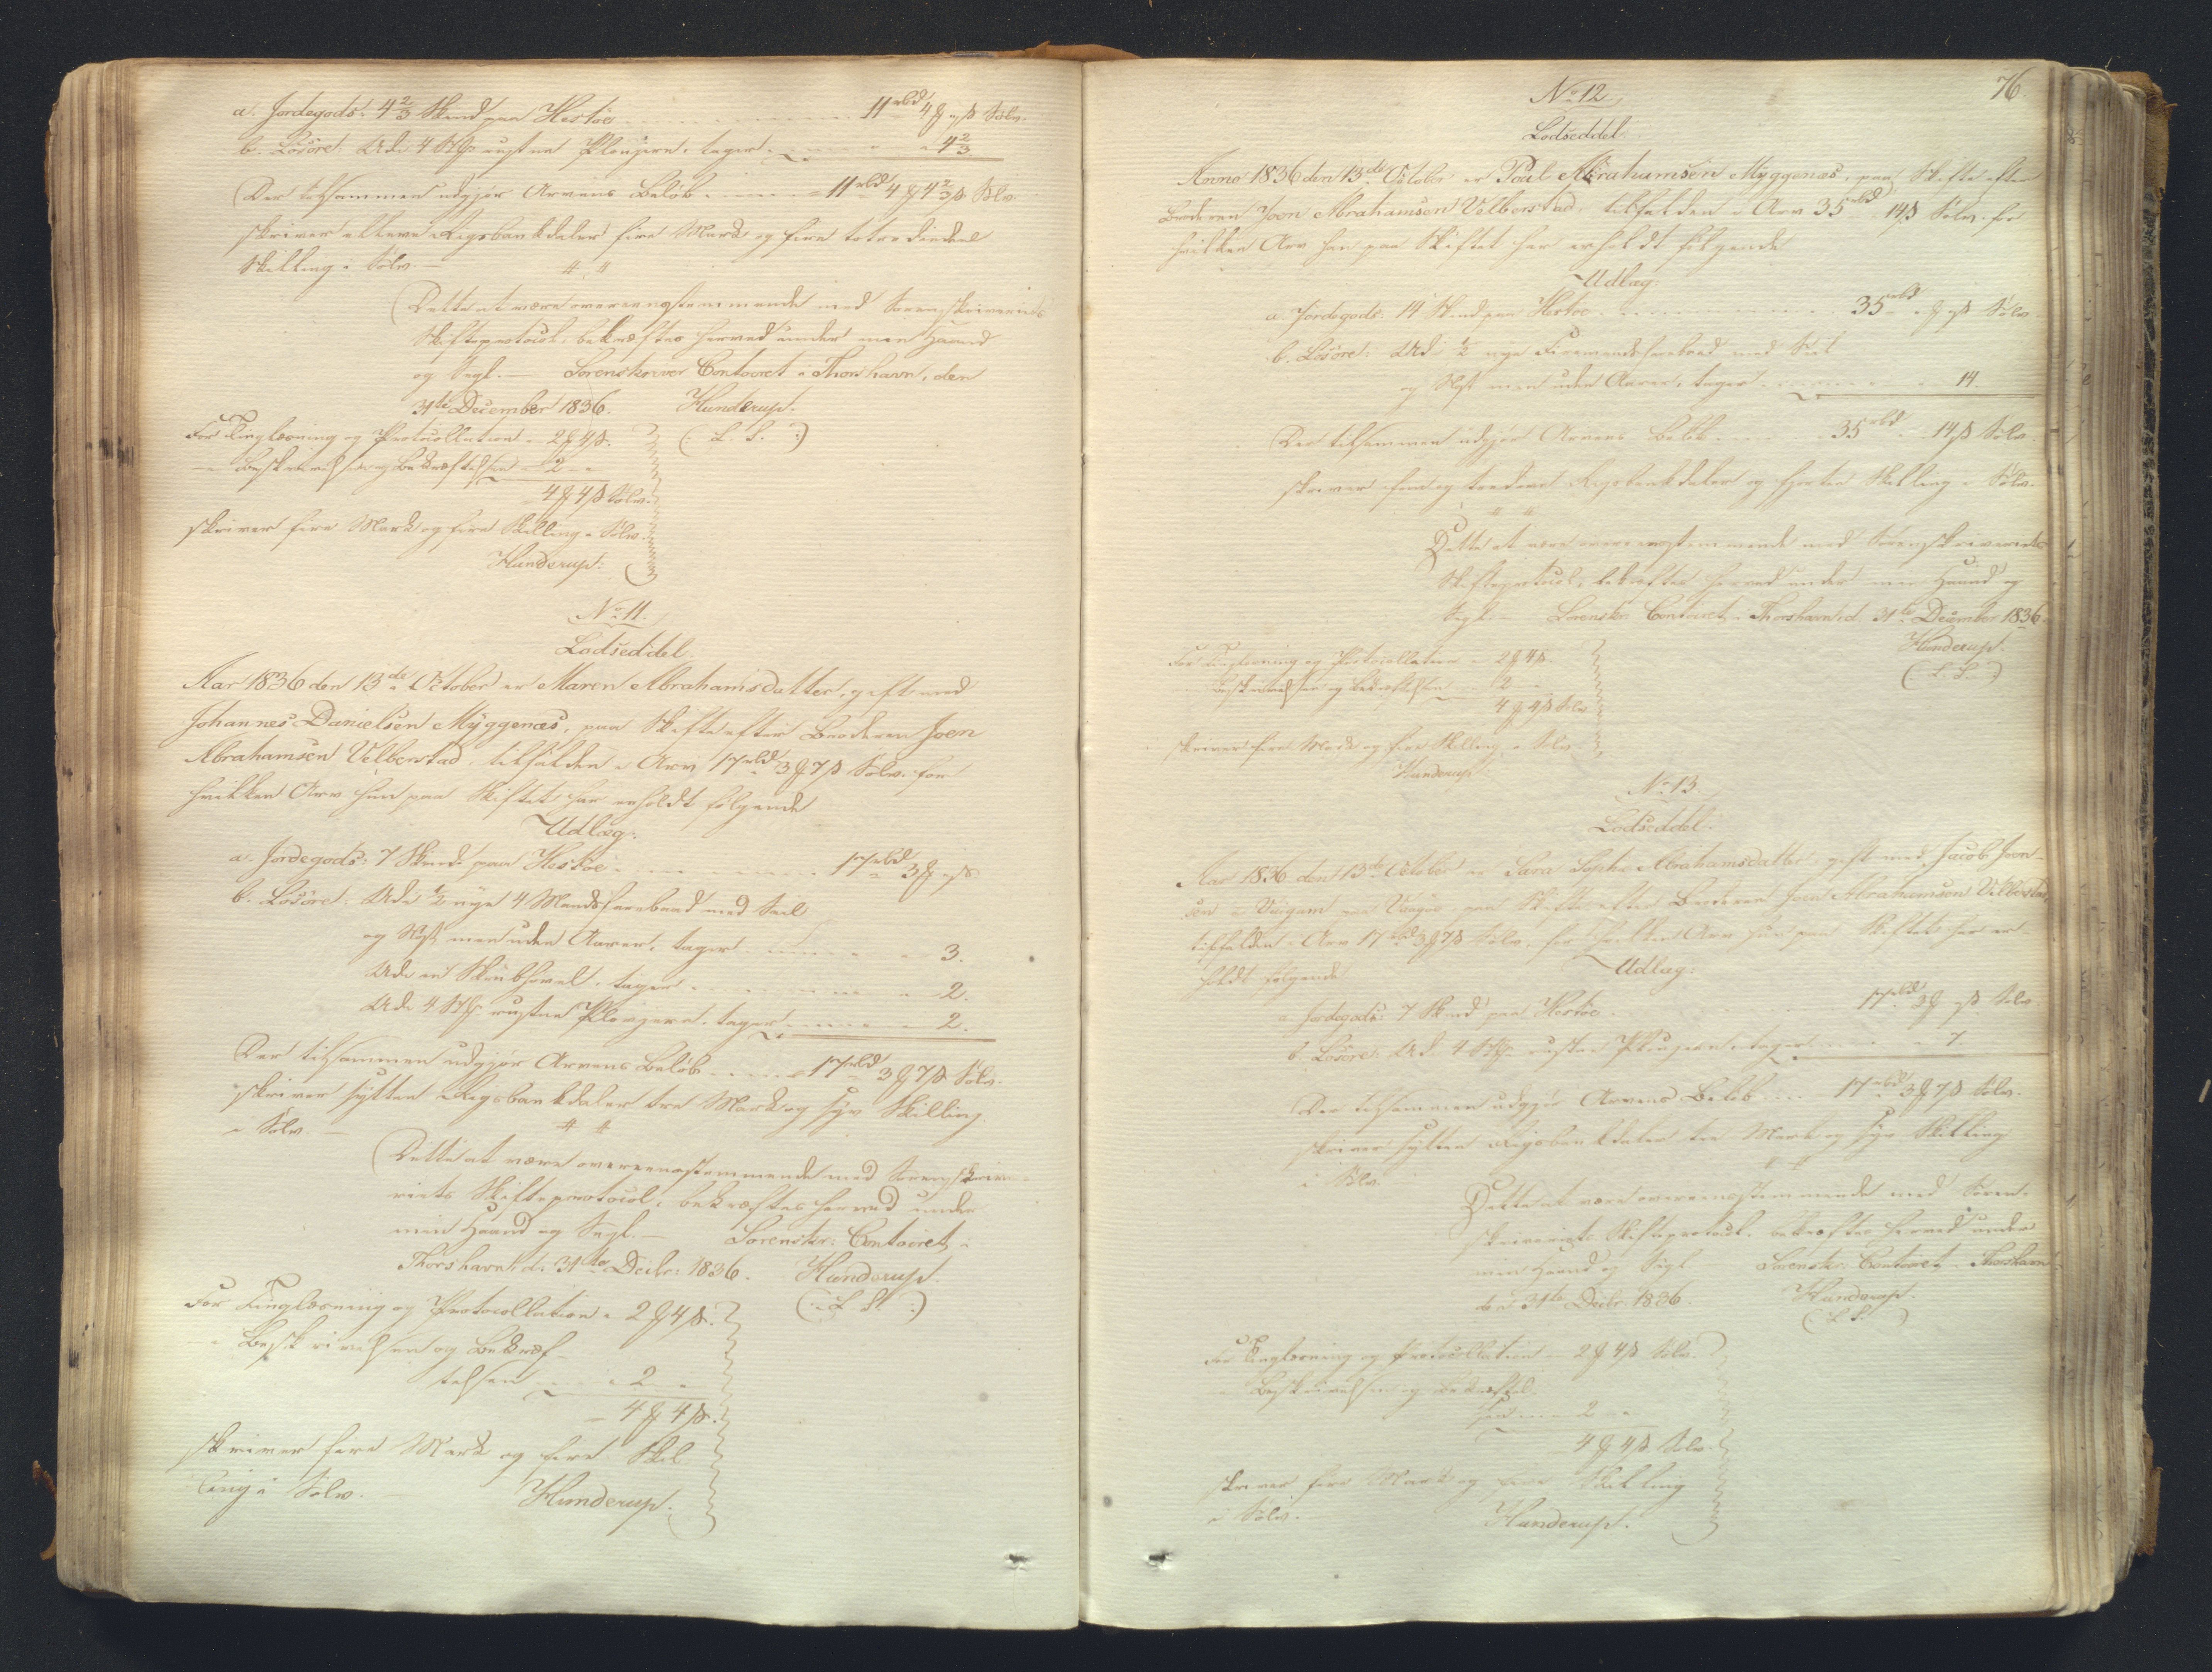 a. Jordegods: 4 2/3 Skind paa Hestøe 11 rbd 4 ℳ " ß Sølv.
b. Løsøre: Udi 4 Stkr rustne Plovjern, tager " " 4 2/3.
Der tilsammen udgjør Arvens Beløb 11 rbd 4 ℳ 4 2/3 ß Sølv.
skriver elleve Rigsbankdaler fire Mark og fire totrediedeel
Skilling i Sølv. —
Dette at være overeensstemmende med Sorenskriveriets
Skifteprotocol, bekræftes herved under min Haand
og Segl. — Sorenskriver Contoiret i Thorshavn, den
31te December 1836. Hunderup.
(: L. S. :)
For Tinglæsning og Protocollation " 2 ℳ 4 ß.
— Beskrivelsen og Bekræftelsen " 2 — "
4 ℳ 4 ß Sølv.
skriver fire Mark og fire Skilling i Sølv.
Hunderup.
No 11.
Lodseddel.
Aar 1836 den 13de October er Maren Abrahamsdatter, gift med
Johannes Danielsen Myggenæs, paa Skifte efter Broderen Joen
Abrahamsen Velberstad, tilfalden i Arv 17 rbd 3 ℳ 7 ß Sølv, for
hvilken Arv hun paa Skiftet har erholdt følgende
Udlæg:
a. Jordegods: 7 Skind paa Hestøe 17 rbd 3 ℳ " ß
b. Løsøre: Udi 1/2 nye 4 Mandsfarebaad med Seil
og Mast, men uden Aarer, tager " " 3.
Udi en Skrubhøvel, tager " " 2.
Udi 4 Stkr rustne Plovjern, tager " " 2.
Der tilsammen udgjør Arvens Beløb 17 rbd 3 ℳ 7 ß Sølv.
skriver sytten Rigsbankdaler tre Mark og syv Skilling
i Sølv. —
Dette at være overeensstemmende med Sorenskrive-
riets Skifteprotocol, bekræftes herved under
min Haand og Segl. — Sorenskr: Contoiret i
Thorshavn d. 31te Decbr: 1836. Hunderup.
(: L. S. :)
For Tinglæsning og Protocollation " 2 ℳ 4 ß.
— " Beskrivelsen og Bekræf-
telsen " 2 "
4 ℳ 4 ß.
skriver fire Mark og fire Skil-
ling i Sølv. Hunderup.
76
No 12.
Lodseddel.
Anno 1836 den 13de October er Poul Abrahamsen Myggenæs, paa Skifte efter
Broderen Joen Abrahamsen Velberstad, tilfalden i Arv 35 rbd 14 ß Sølv, for
hvilken Arv han paa Skiftet har erholdt følgende
Udlæg:
a. Jordegods: 14 Skind paa Hestøe 35 rbd " ℳ " ß Sølv.
b. Løsøre: Udi 1/2 nye Firemandsfarebaad med Seil
og Mast men uden Aarer, tager " " 14.
Der tilsammen udgjør Arvens Beløb 35 rbd " 14 ß Sølv.
skriver fem og tredive Rigsbankdaler og fjorten Skilling i Sølv.
Dette at være overeensstemmende med Sorenskriveriets
Skifteprotocol, bekræftes herved under min Haand og
Segl. — Sorenskr Contoiret i Thorshavn d. 31te December 1836.
Hunderup.
(: L. S. :)
For Tinglæsning og Protocollation " 2 ℳ 4 ß.
Beskrivelsen og Bekræftelsen 2 —
4 ℳ 4 ß Sølv
skriver fire Mark og fire Skilling i Sølv.
Hunderup.
No 13.
Lodseddel.
Aar 1836 den 13de October er Sara Sophie Abrahamsdatter, gift med Jacob Joen-
sen i Vaagum paa Vaagøe, paa Skifte efter Broderen Joen Abrahamsen Velberstad,
tilfalden i Arv 17 rbd 3 ℳ 7 ß Sølv, for hvilken Arv hun paa Skiftet har er-
holdt følgende Udlæg:
a. Jordegods: 7 Skind paa Hestøe 17 rbd 3 ℳ " ß Sølv.
b. Løsøre: Udi 4 Stkr rustne Plovjern, tager " " 7.
Der tilsammen udgjør Arvens Beløb 17 rbd 3 ℳ 7 ß Sølv.
skriver sytten Rigsbankdaler tre Mark og syv Skilling
i Sølv.
Dette at være overeensstemmende med Soren-
skriveriets Skifteprotocol, bekræftes herved under
min Haand og Segl Sorenskr: Contoiret i Thorshavn
den 31te Decbr: 1836. Hunderup.
(: L. S. :)
For Tinglæsning og Protocollation — 2 ℳ 4 ß Sølv.
— Beskrivelsen og Bekræftel-
sen 2 —
4 ℳ 4 ß Sølv.
skriver fire Mark og fire Skilling
i Sølv. Hunderup.